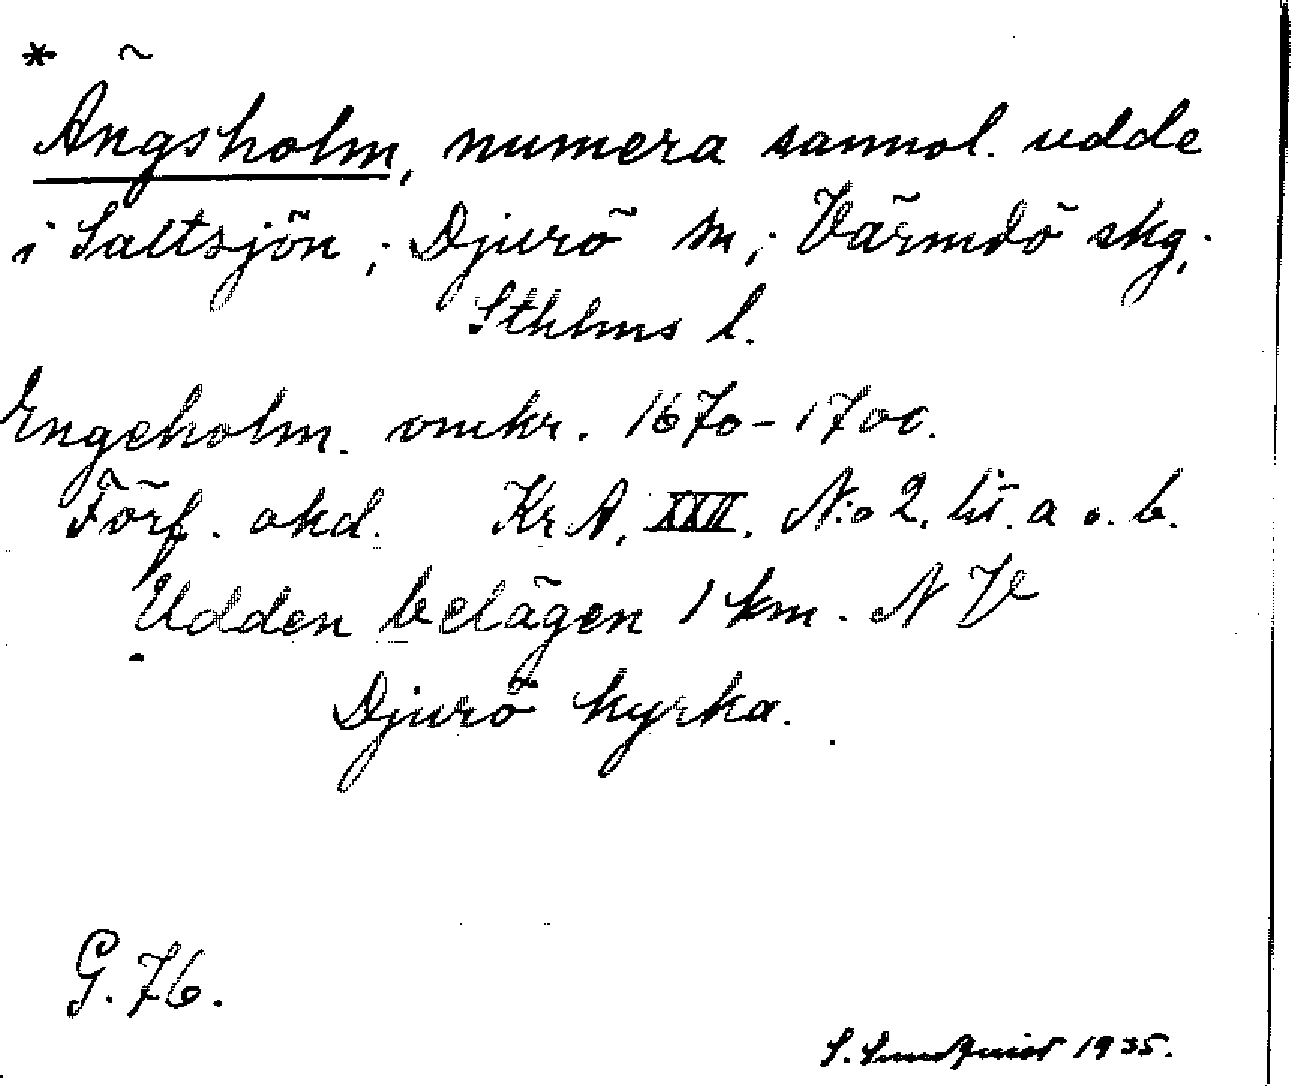 * Ängsholm, numera sannol. udde
i Saltsjön; Djurö sn; Värmdö skg,
Sthlms l.
Engeholm. omkr. 1670-1700.
Förf. okd. Kr A. XXVI. N:o 2. lit. a o. b.
Udden belägen 1 km. NV
Djurö kyrka.
G. 76.
S. Sundquist 1935.